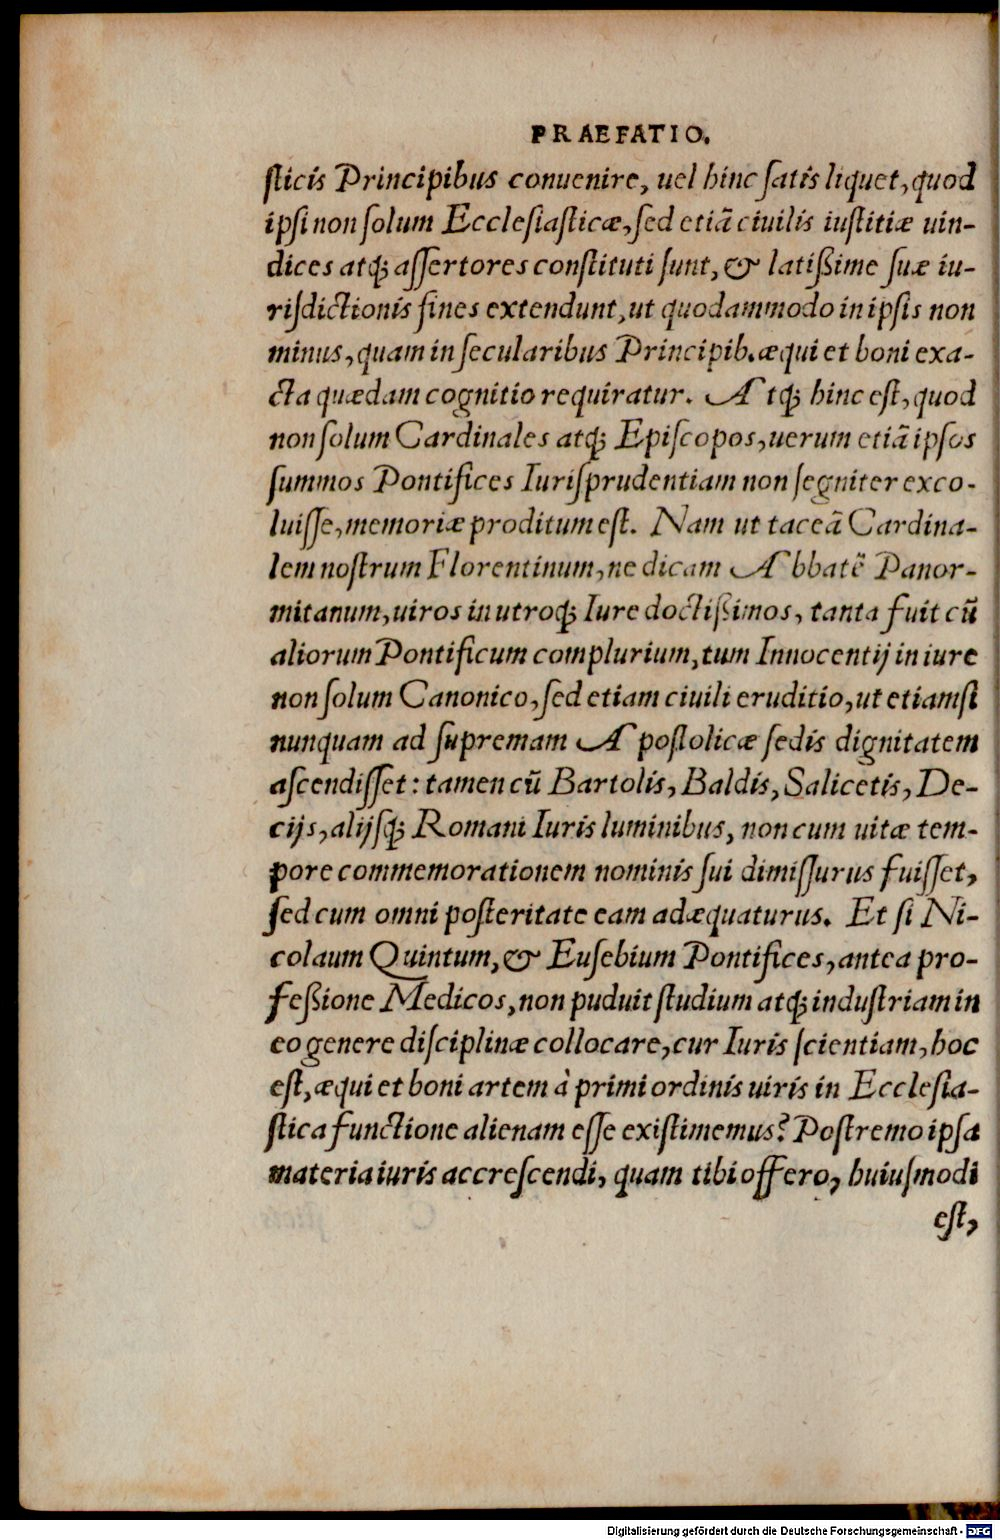 PRAEFATIO.
sticis Principibus conuenire, uel hinc satis liquet, quod
ipsi non solum Ecclesiasticæ, sed etiã ciuilis iustitiæ uin-
dices atq́; assertores constituti sunt, & latißime suæ iu-
risdictionis fines extendunt, ut quodammodo in ipsis non
minus, quam in secularibus Principib. æqui et boni exa-
cta quædam cognitio requiratur. Atq́; hinc est, quod
non solum Cardinales atq́; Episcopos, uerum etiã ipsos
summos Pontifices Iurisprudentiam non segniter exco-
luisse, memoriæ proditum est. Nam ut taceã Cardina-
lem nostrum Florentinum, ne dicam Abbatẽ Panor-
mitanum, uiros in utroq́; Iure doctißimos, tanta fuit cũ
aliorum Pontificum complurium, tum Innocentij in iure
non solum Canonico, sed etiam ciuili eruditio, ut etiamsi
nunquam ad supremam Apostolicæ sedis dignitatem
ascendisset: tamen cũ Bartolis, Baldis, Salicetis, De-
cijs, alijsq́; Romani Iuris luminibus, non cum uitæ tem-
pore commemorationem nominis sui dimissurus fuisset,
sed cum omni posteritate eam adæquaturus. Et si Ni-
colaum Quintum, & Eusebium Pontifices, antea pro-
feßione Medicos, non puduit studium atq́; industriam in
eo genere disciplinæ collocare, cur Iuris scientiam, hoc
est, æqui et boni artem à primi ordinis uiris in Ecclesia-
stica functione alienam esse existimemus? Postremo ipsa
materia iuris accrescendi, quam tibi offero, huiusmodi
est,
Digitalisierung gefördert durch die Deutsche Forschungsgemeinschaft - DFG